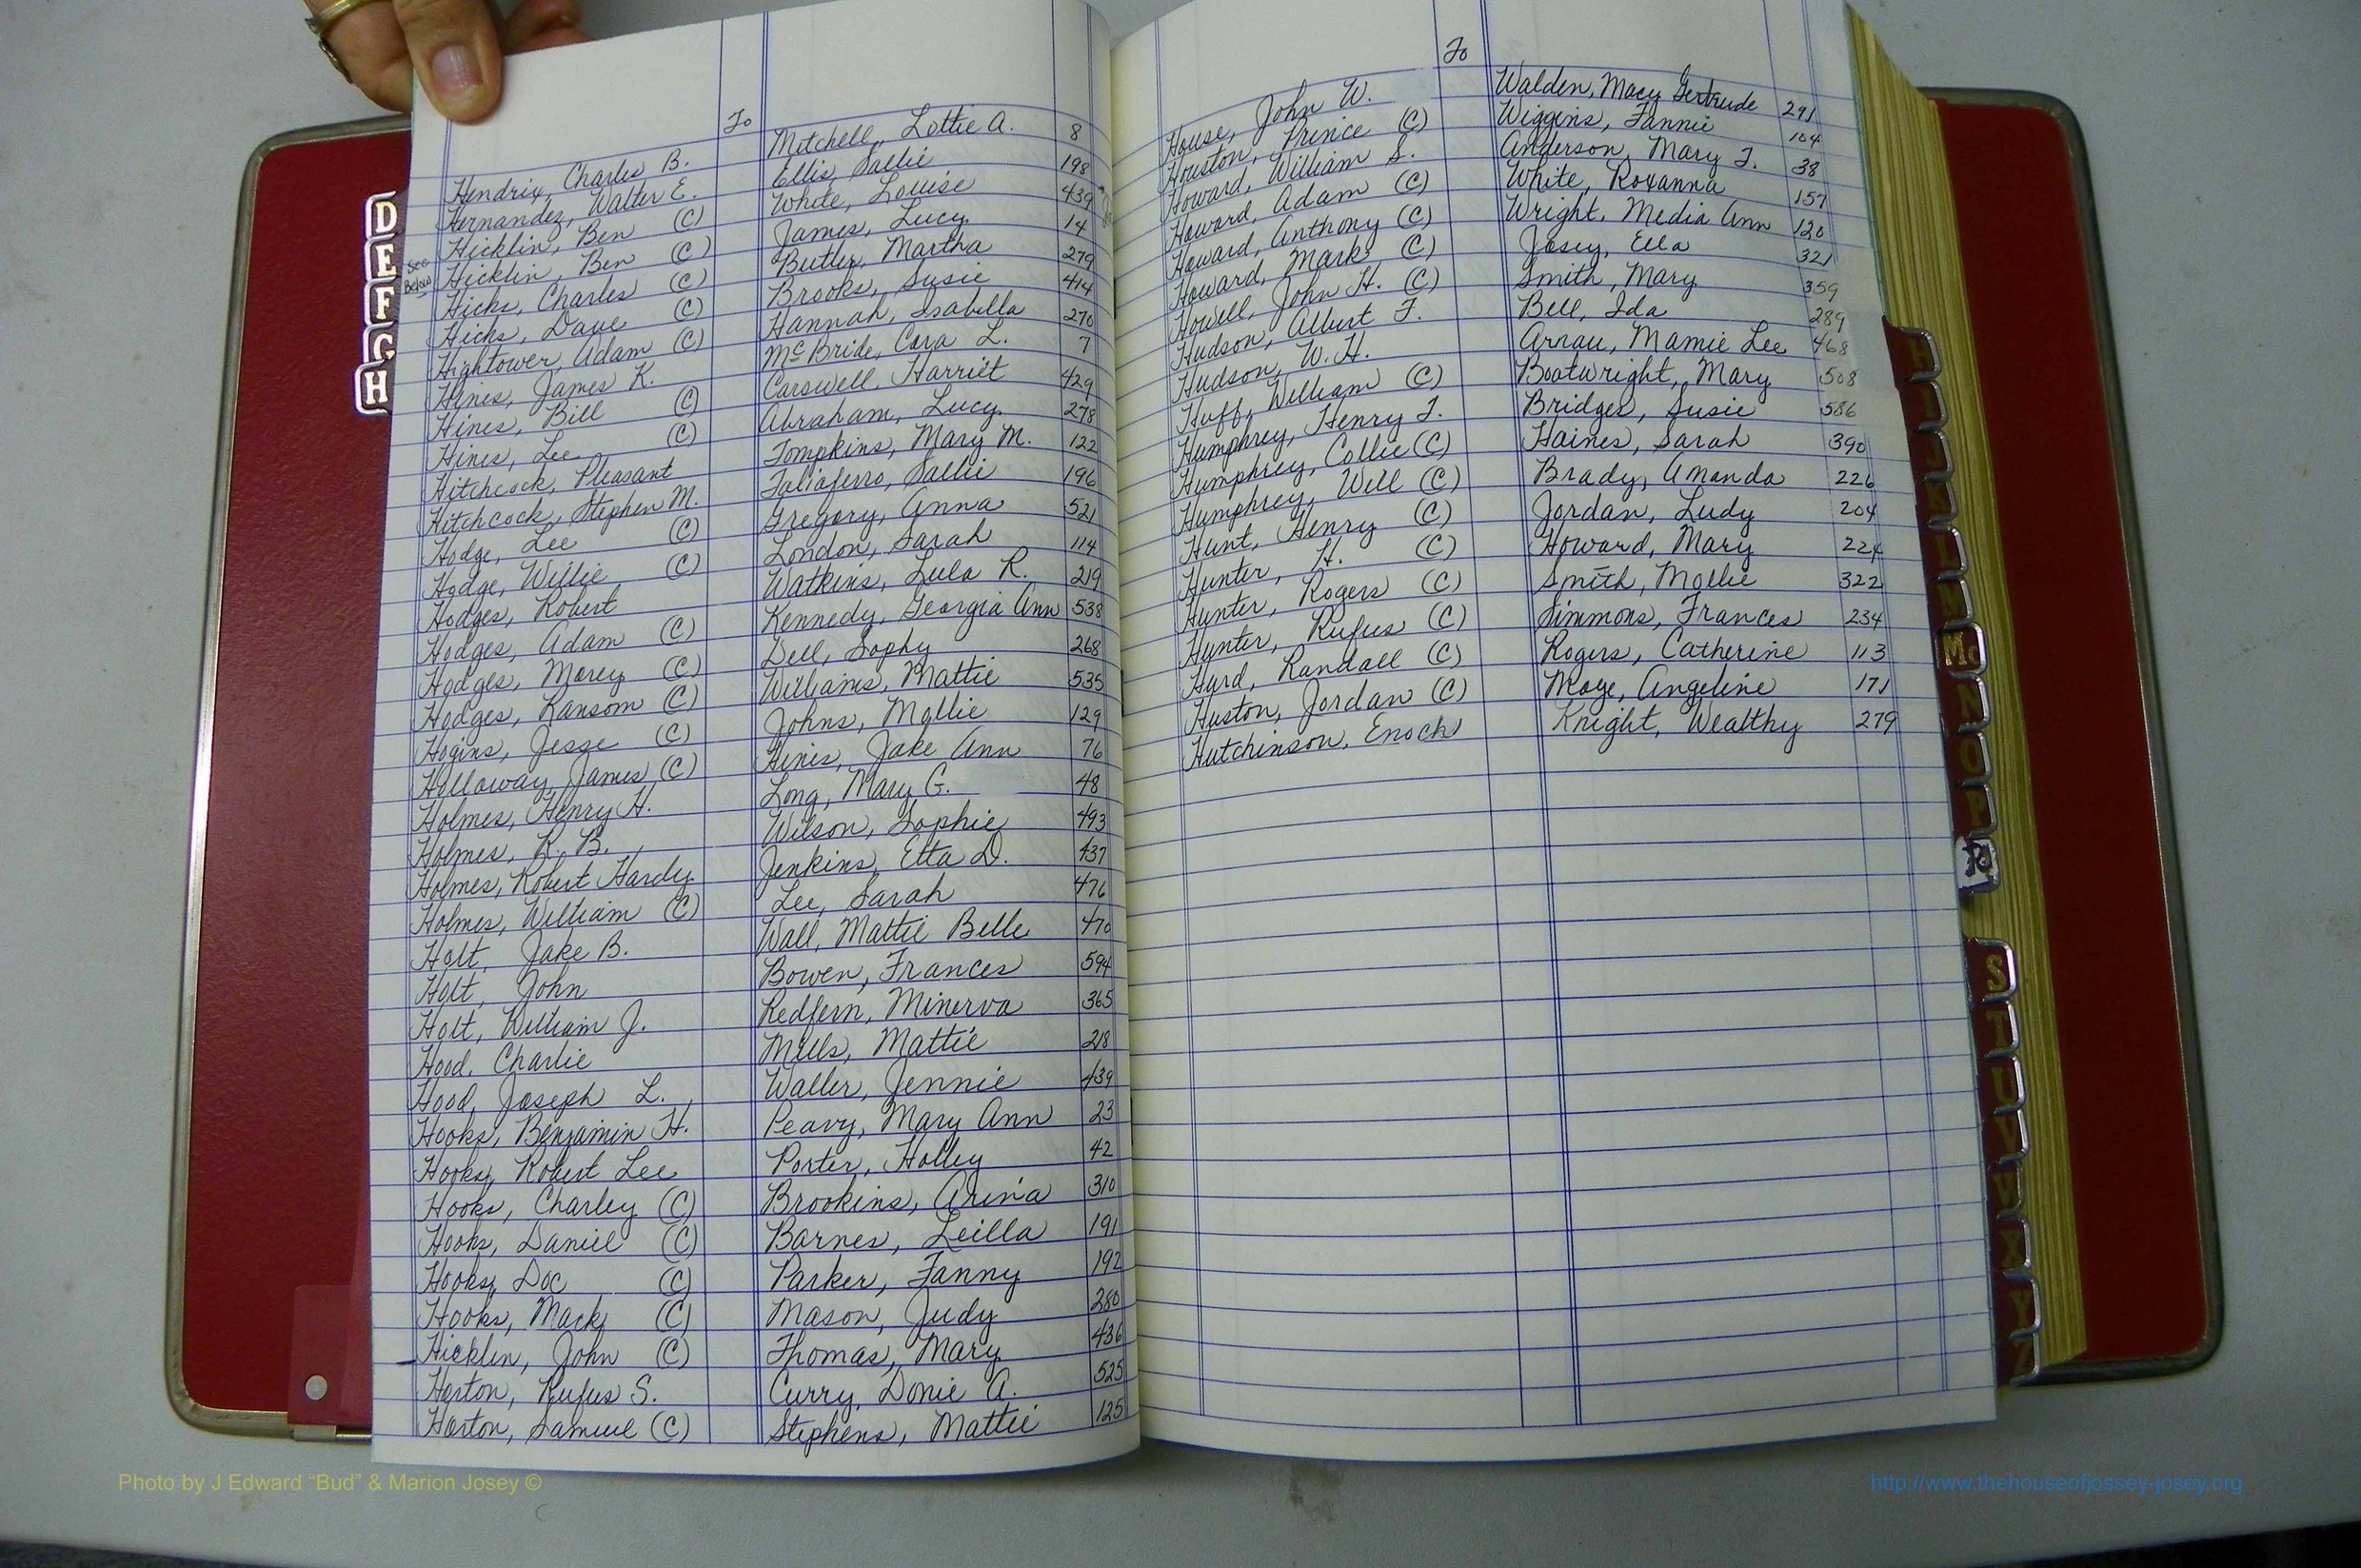 To
Hendrix, Charles B. Mitchell, Lottie A. 8
Hernandez, Walter E. Ellis, Sallie 198
Hicklin, Ben (C) White, Louise 439
See Below Hicklin, Ben (C) James, Lucy 14
Hicks, Charles (C) Butler, Martha 279
Hicks, Dave (C) Brooks, Susie 414
Hightower, Adam (C) Hannah, Isabella 270
Hines, James K. McBride, Cora L. 7
Hines, Bill (C) Carswell, Harriet 429
Hines, Lee (C) Abraham, Lucy 278
Hitchcock, Pleasant Tompkins, Mary M. 122
Hitchcock, Stephen M. Taliaferro, Sallie 196
Hodge, Lee (C) Gregory, Anna 521
Hodge, Willie (C) London, Sarah 114
Hodges, Robert Watkins, Lula R. 219
Hodges, Adam (C) Kennedy, Georgia Ann 538
Hodges, Morey (C) Dell, Sophy 268
Hodges, Ransom (C) Williams, Mattie 535
Hogins, Jesse (C) Johns, Mollie 129
Holloway, James (C) Hines, Jake Ann 76
Holmes, Henry H. Long, Mary G. 48
Holmes, R. B. Wilson, Sophie 493
Holmes, Robert Hardy Jenkins, Etta D. 437
Holmes, William (C) Lee, Sarah 476
Holt, Jake B. Wall, Mattie Belle 470
Holt, John Bowen, Frances 594
Holt, William J. Redfern, Minerva 365
Hood, Charlie Mills, Mattie 218
Hood, Joseph L. Waller, Jennie 439
Hooks, Benjamin H. Peavy, Mary Ann 23
Hooks, Robert Lee Porter, Holley 42
Hooks, Charley (C) Brookins, Arena 310
Hooks, Daniel (C) Barnes, Leilla 191
Hooks, Doc (C) Parker, Fanny 192
Hooks, Mack (C) Mason, Judy 280
Hicklin, John (C) Thomas, Mary 436
Horton, Rufus S. Curry, Donie A. 525
Horton, Samuel (C) Stephens, Mattie 125
To
House, John W. Walden, Macy Gertrude 291
Houston, Prince (C) Wiggins, Fannie 104
Howard, William S. Anderson, Mary J. 38
Howard, Adam (C) White, Roxanna 157
Howard, Anthony (C) Wright, Media Ann 120
Howard, Mark (C) Josey, Ella 321
Howell, John H. (C) Smith, Mary 359
Hudson, Albert F. Bell, Ida 289
Hudson, W. H. Arnau, Mamie Lee 468
Huff, William (C) Boatwright, Mary 508
Humphrey, Henry J. Bridges, Susie 586
Humphrey, Collie (C) Haines, Sarah 390
Humphrey, Will (C) Brady, Amanda 226
Hunt, Henry (C) Jordan, Ludy 204
Hunter, H. (C) Howard, Mary 224
Hunter, Rogers (C) Smith, Mollie 322
Hunter, Rufus (C) Simmons, Frances 234
Hurd, Randall (C) Rogers, Catherine 113
Huston, Jordan (C) Moye, Angeline 171
Hutchinson, Enoch Knight, Wealthy 279
D
E
F
G
H
H
I
J
K
L
M
Mc
N
O
P
R
S
T
U
V
W
X
Y
Z
Photo by J Edward “Bud” & Marion Josey ©
http://www.thehouseofjossey-josey.org